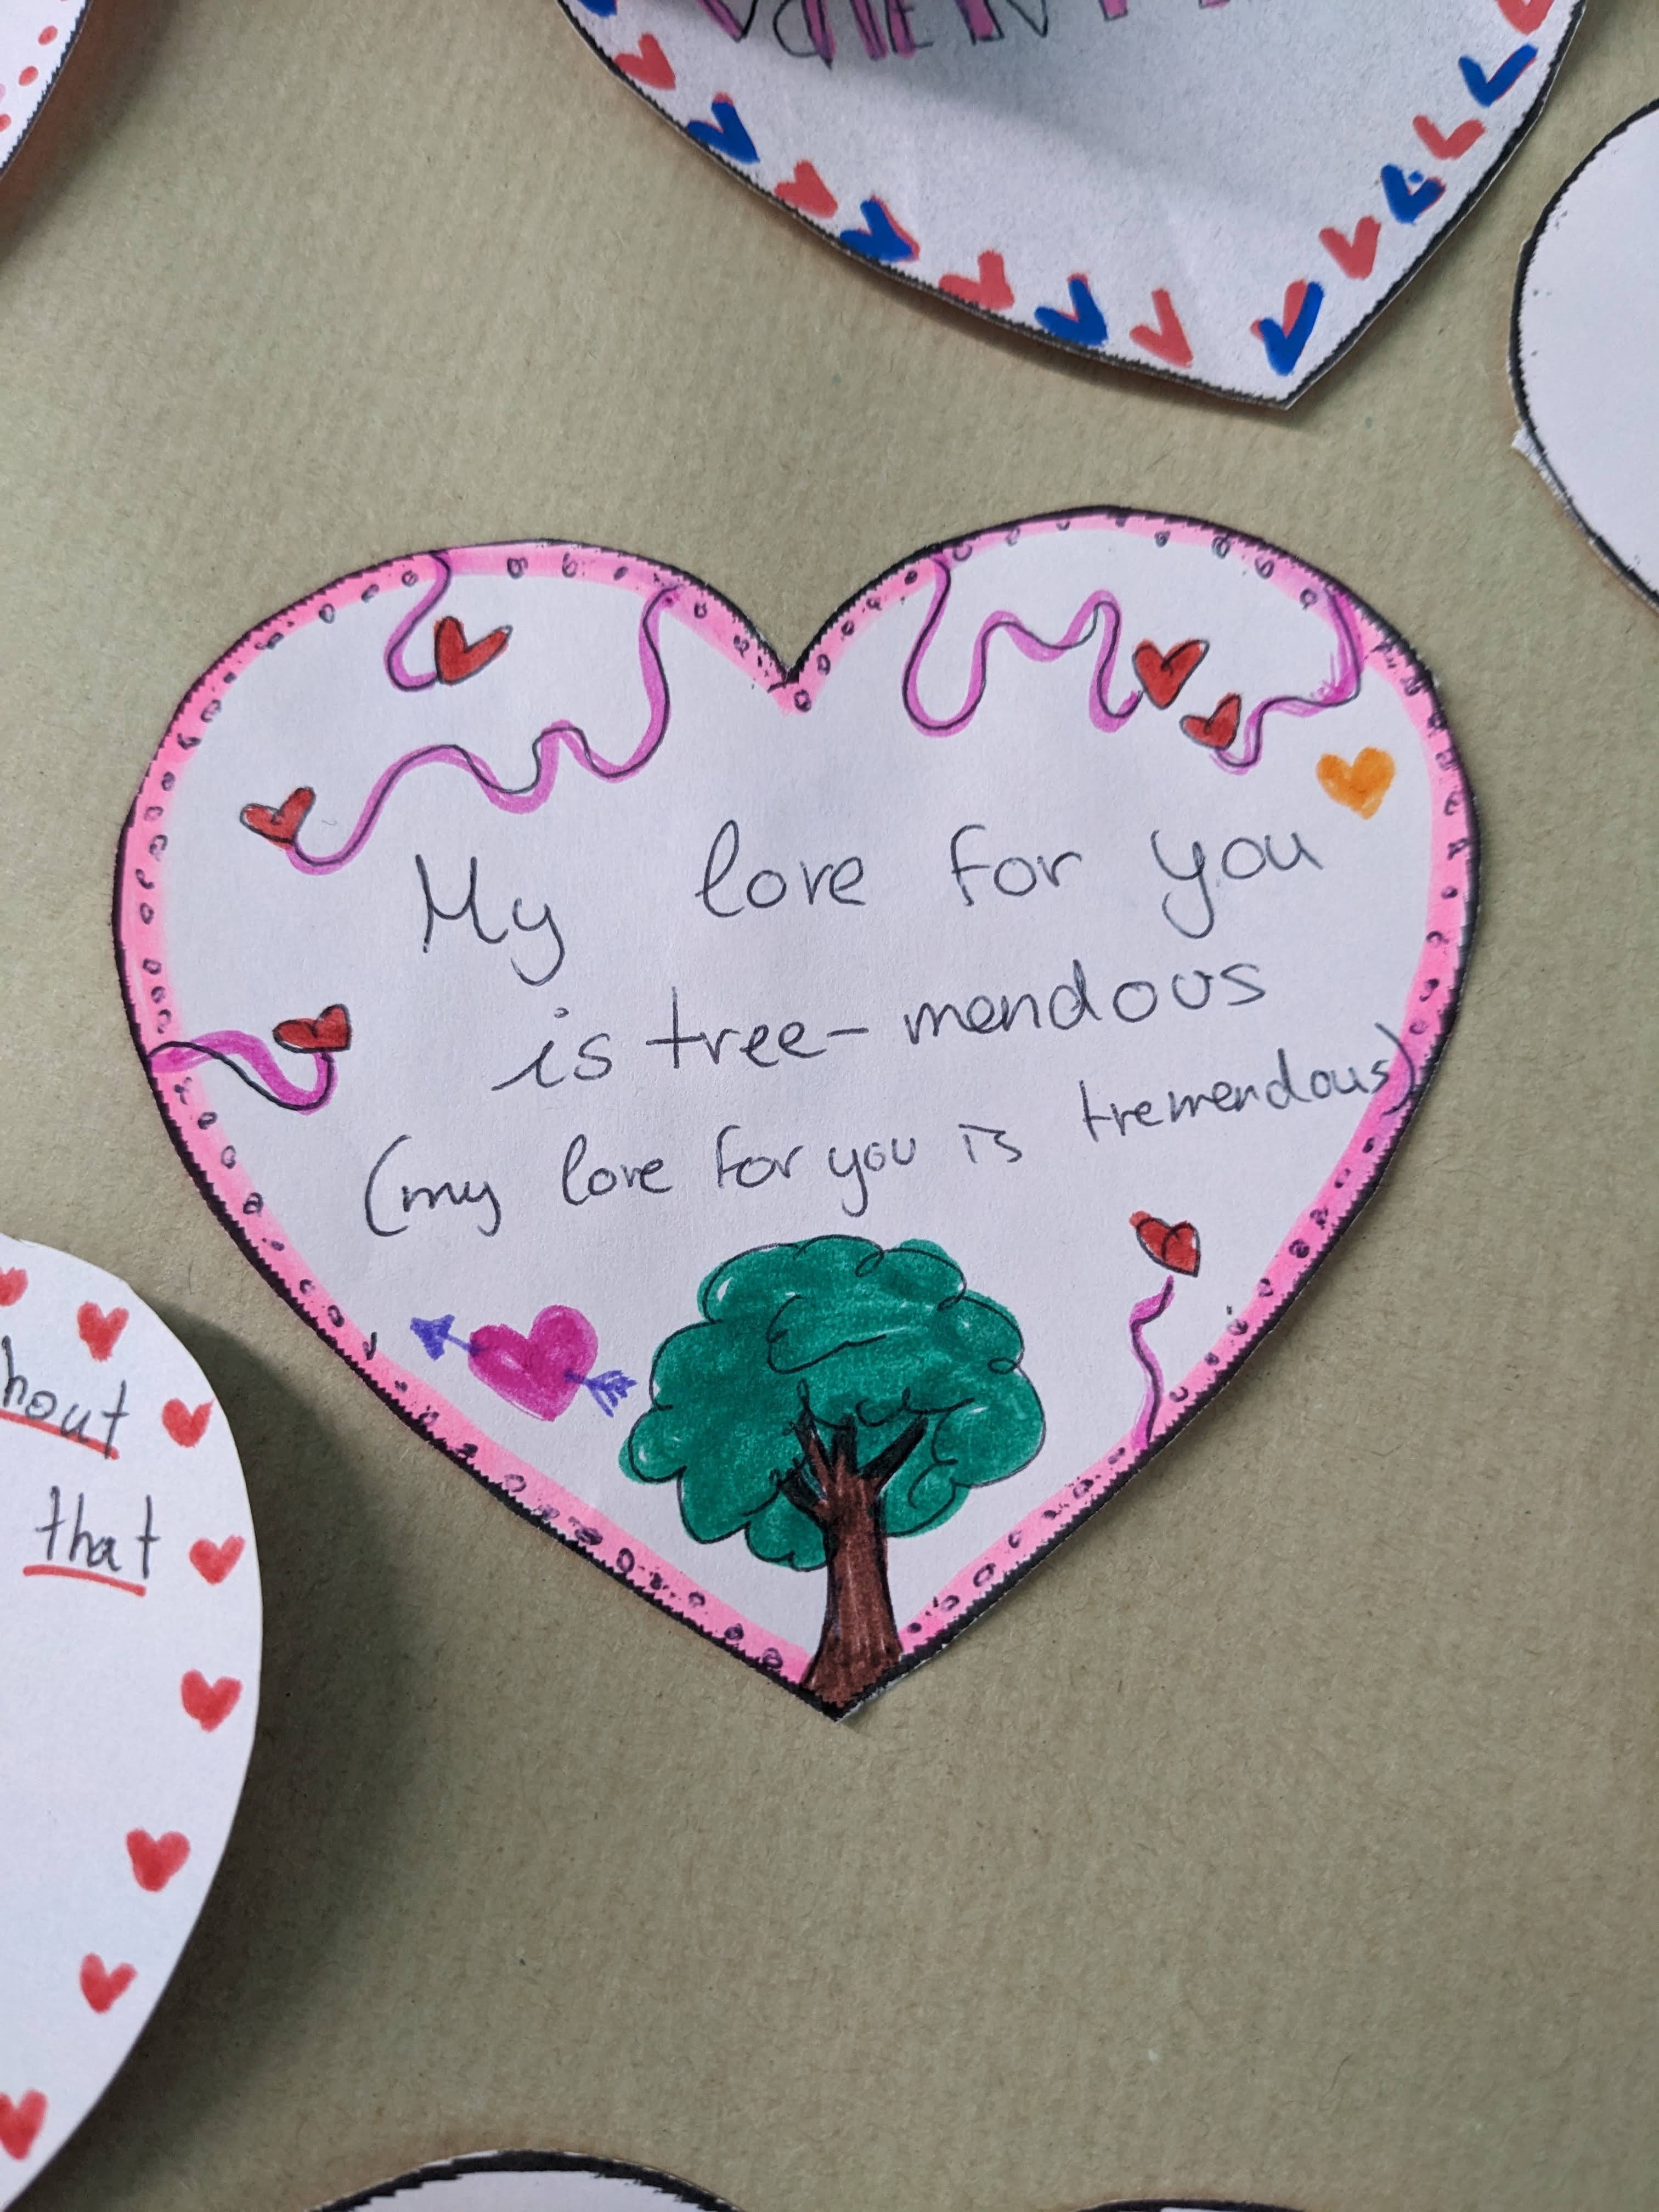 My love for you
is tree-mendous
(my love for you is tremendous)
that